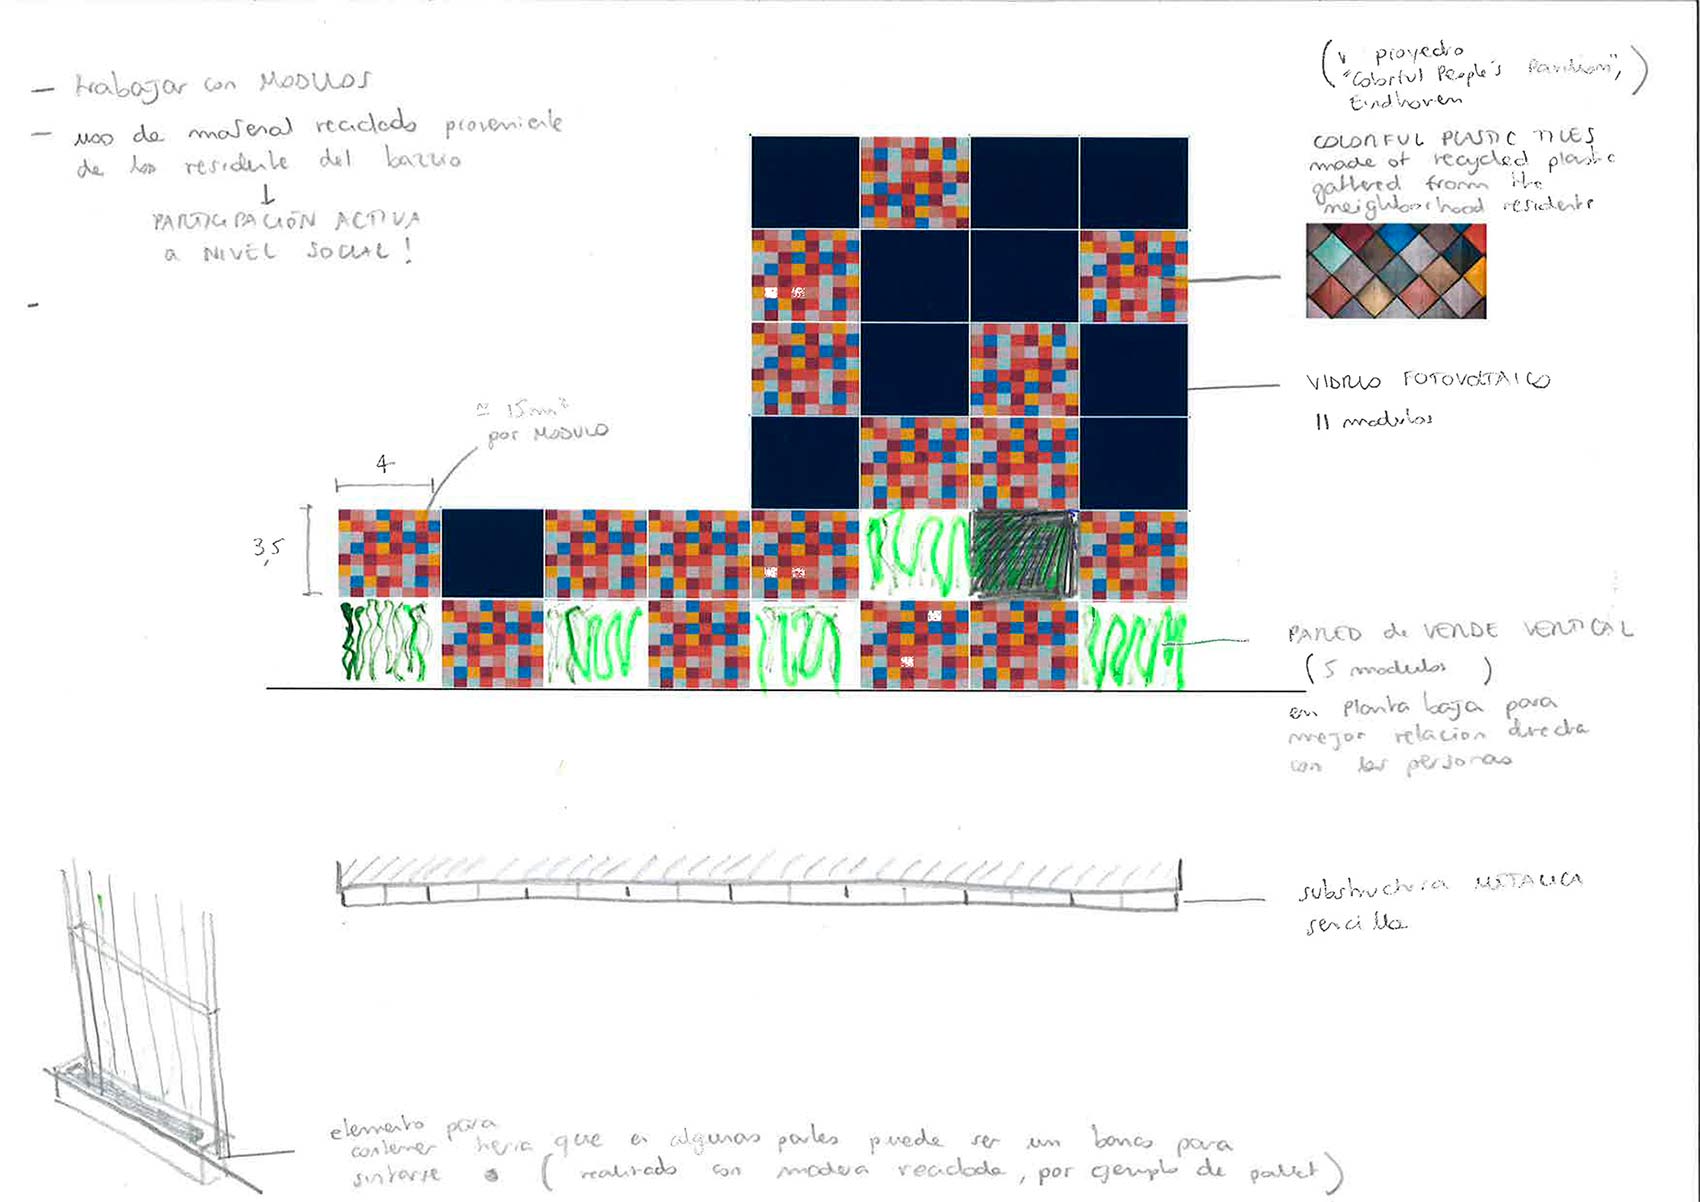 — trabajar con MODULOS
— uso de material reciclado proveniente
de los residente del barrio
↓
PARTICIPACIÓN ACTIVA
a NIVEL SOCIAL!
-
(v proyecto
"Colorful People's Pavilion",)
Eindhoven
COLORFUL PLASTIC TILES
made of recycled plastic
gathered from the
neighborhood residents
VIDRIO FOTOVOLTAICO
11 modulos
≃ 15 m²
por MODULO
4
3,5
PARED de VERDE VERTICAL
(5 modulos)
en planta baja para
mejor relacion directa
con las personas
substructura METALICA
sencilla
elemento para
contener tierra que en algunas partes puede ser un banco para
sintarse (realizado con madera reciclada, por ejemplo de pallet)